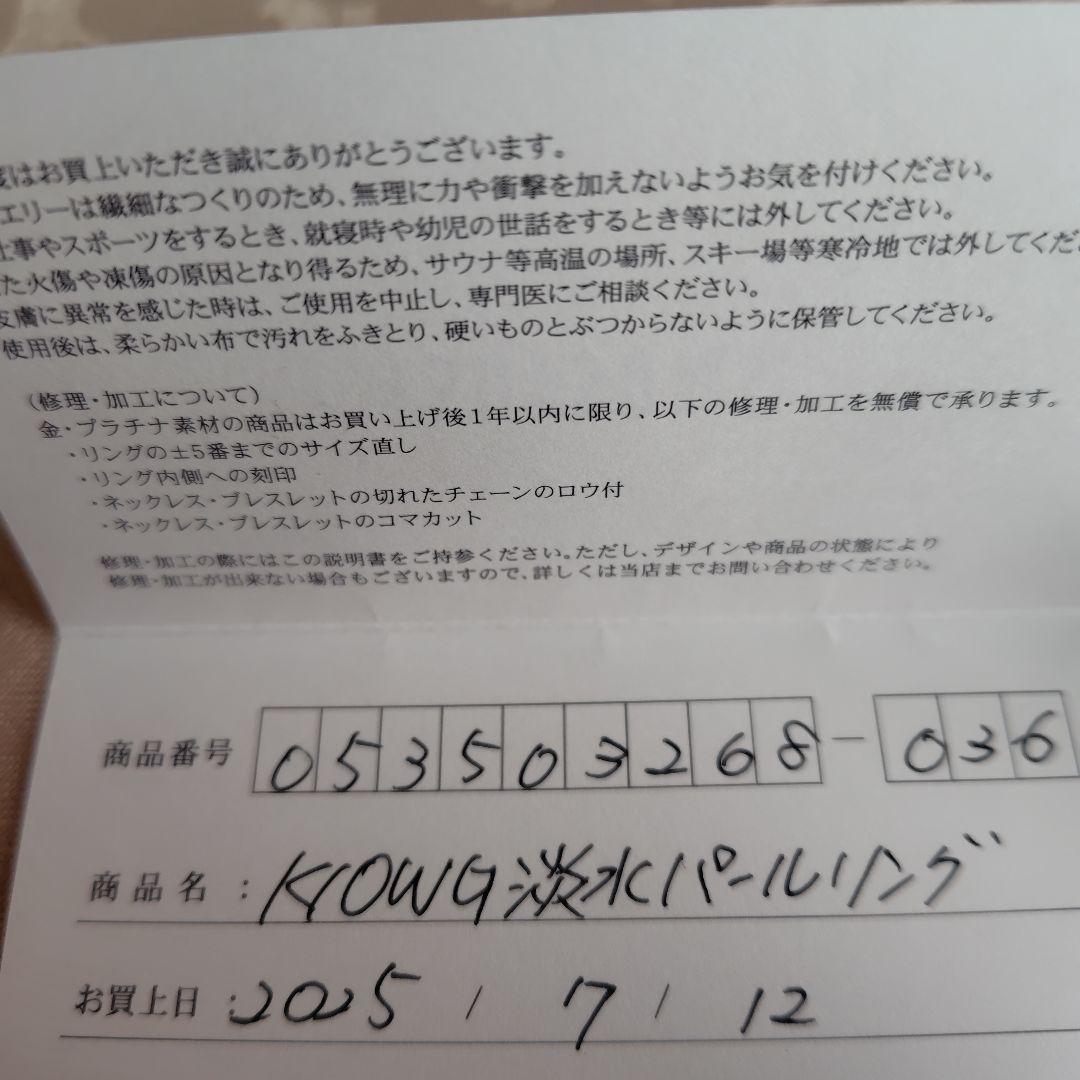 度はお買上いただき誠にありがとうございます。
エリーは繊細なつくりのため、無理に力や衝撃を加えないようお気を付けください。
仕事やスポーツをするとき、就寝時や幼児の世話をするとき等には外してください。
た火傷や凍傷の原因となり得るため、サウナ等高温の場所、スキー場等寒冷地では外してくだ
皮膚に異常を感じた時は、ご使用を中止し、専門医にご相談ください。
使用後は、柔らかい布で汚れをふきとり、硬いものとぶつからないように保管してください。
(修理・加工について)
金・プラチナ素材の商品はお買い上げ後1年以内に限り、以下の修理・加工を無償で承ります。
・リングの±5番までのサイズ直し
・リング内側への刻印
・ネックレス・ブレスレットの切れたチェーンのロウ付
・ネックレス・ブレスレットのコマカット
修理・加工の際にはこの説明書をご持参ください。ただし、デザインや商品の状態により
修理・加工が出来ない場合もございますので、詳しくは当店までお問い合わせください。
商品番号 053503268-036
商品名:K10WG淡水パールリング
お買上日:2025/7/12